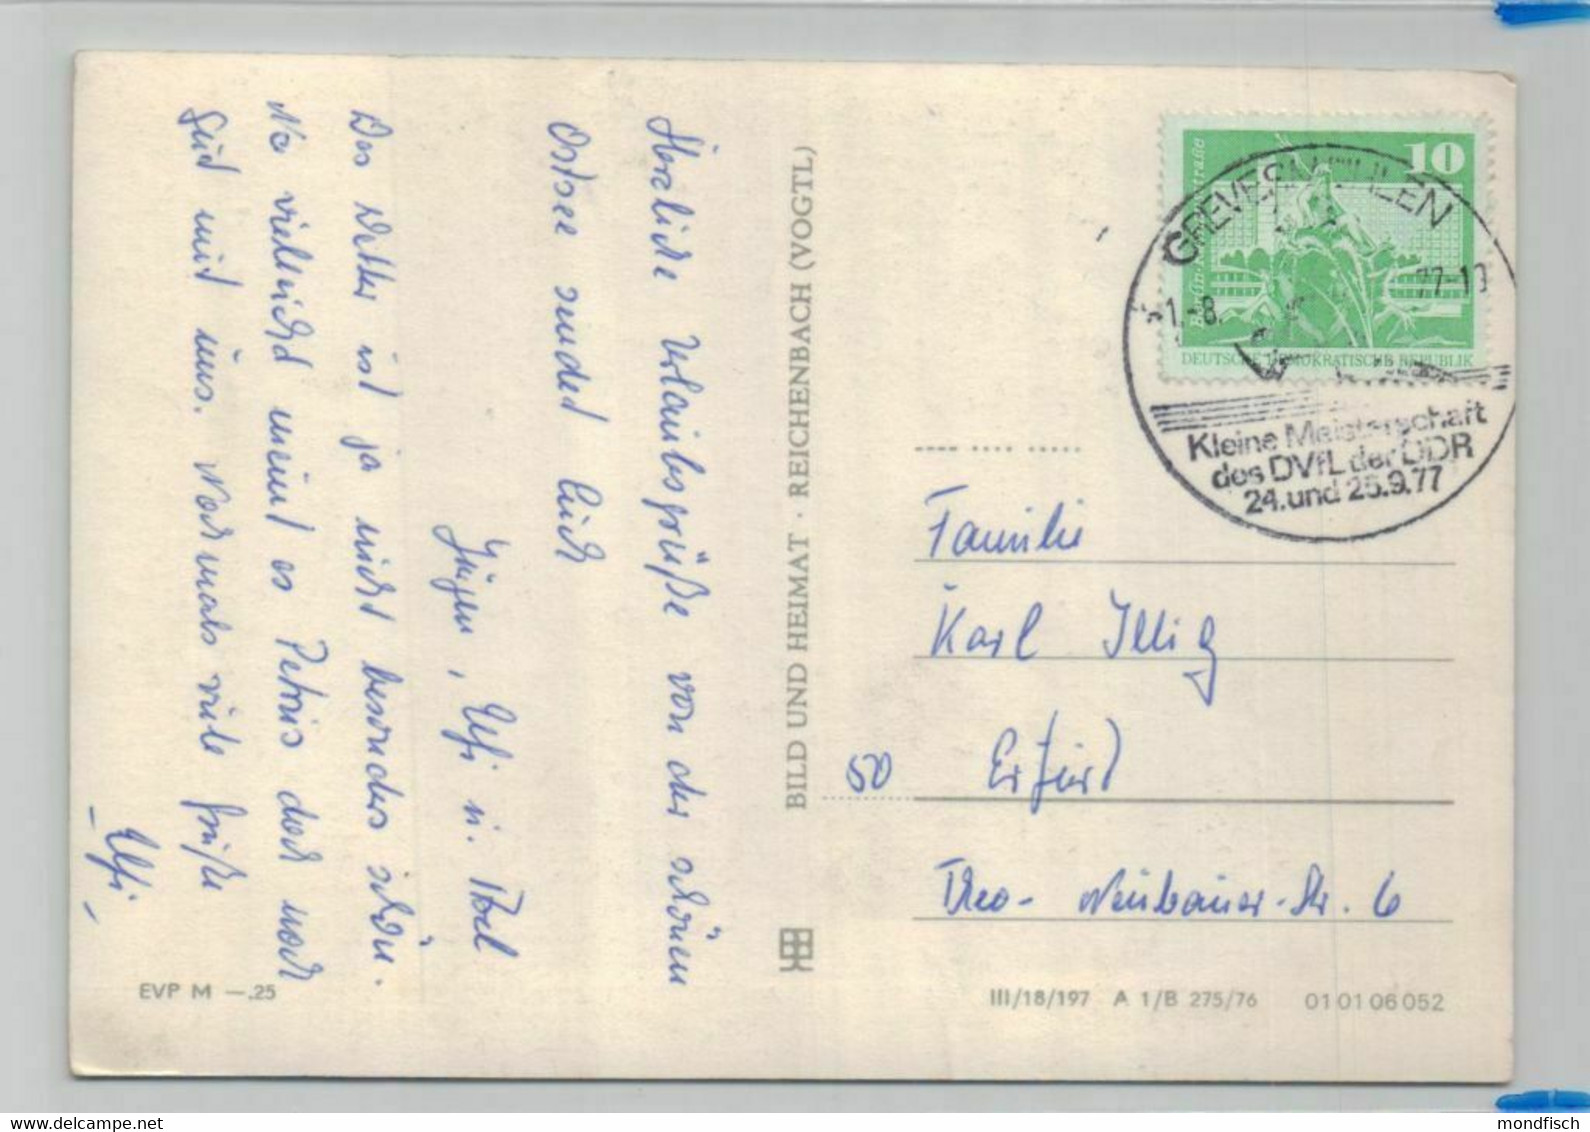 Herzliche Urlaubsgrüße von der schönen
Ostsee sendet Euch
Jürgen, Ulfi u.
Das Wetter ist ja nicht besonders schön.
Na vielleicht meint es Petrus doch noch
gut mit uns. Nochmals viele Grüße
- Ulfi -
EVP M —.25
BILD UND HEIMAT · REICHENBACH (VOGTL)
10
DEUTSCHE DEMOKRATISCHE REPUBLIK
GREVESMÜHLEN
1.-8. 77-10
Kleine Meisterschaft
des DVfL der DDR
24. und 25.9.77
Familie
Karl Illig
50 Erfurt
Theo-Neubauer-Str. 6
III/18/197 A 1/B 275/76 01 01 06 052
mondfisch